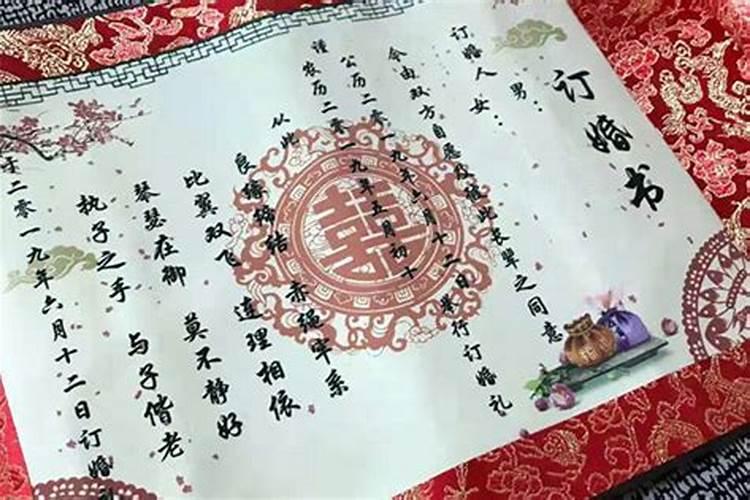 订婚书
男：
订婚人女：
今由双方自愿及长辈之同意
公历二零一九年六月十二日举行订婚礼
谨农历二零一九年五月初十
从此
良缘缔结 赤绳牢系
比翼双飞 连理相依
琴瑟在御 莫不静好
执子之手 与子偕老
于二零一九年六月十二日订婚